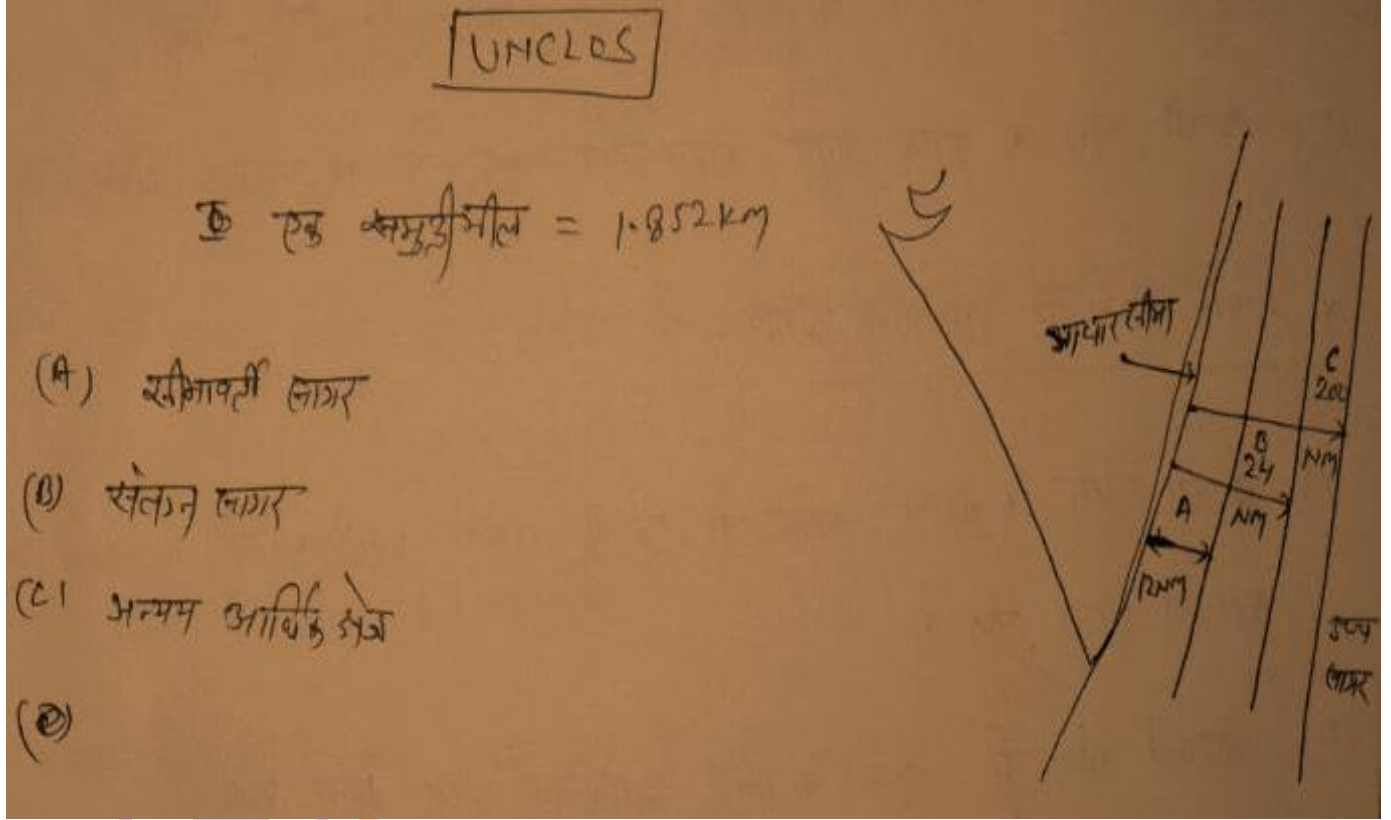 UNCLOS
एक समुद्रीमील = 1.852km
(A) सीमावर्ती सागर
(B) संलग्न सागर
(C) अनन्य आर्थिक क्षेत्र
(D)
आधार सीमा
A
12NM
B
24
NM
C
200
NM
उच्च
सागर